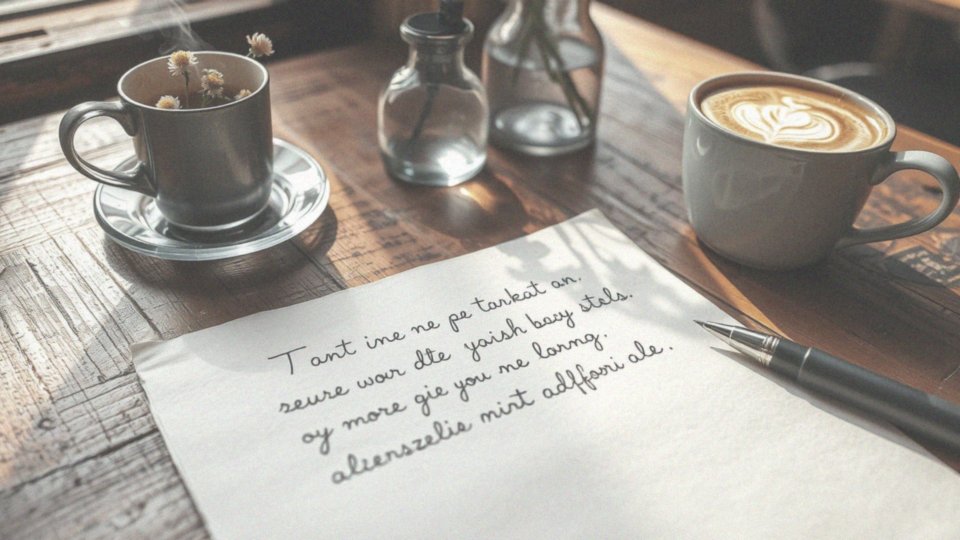 Tant ine ne pe tarkat an.
seure wor dte yaish bacy stels.
oy more gie you ne lorng.
alcenszelie mint adffoni ale.